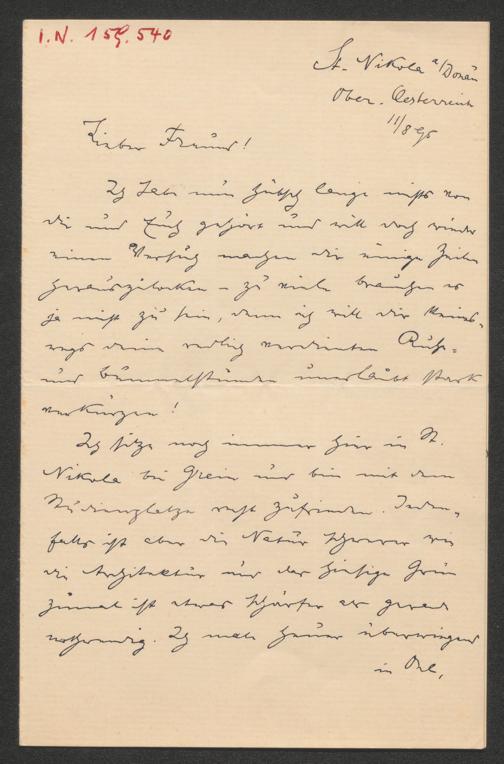 I.N. 159.540
St. Nikola a/Donau
Ober-Oesterreich
11/8 96
Lieber Freund!
Ich habe nun hübsch lange nichts von
dir und Euch gehört und will doch wieder
einen Versuch machen dir einige Zeilen
herauszulocken – zu viele brauchen es
ja nicht zu sein, denn ich will dir keines-
wegs deine redlich verdienten Ruhe-
und Bummelstunden unerlaubt stark
verkürzen!
Ich sitze noch immer hier in St.
Nikola bei Grein und bin mit dem
Studienplatze recht zufrieden. Jeden-
falls ist aber die Natur schwerer wie
die Architektur und das hiesige Grün
zumal ist etwas schärfer als gerade
nothwendig. Ich male heuer überwiegend
in Oel,